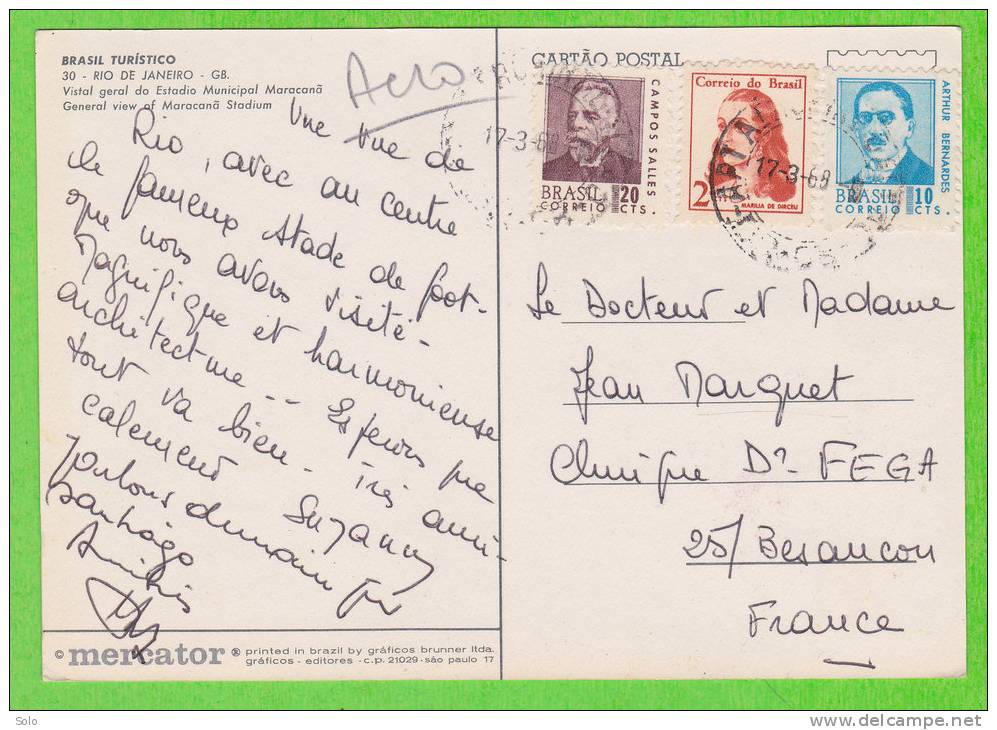 BRASIL TURÍSTICO
30 - RIO DE JANEIRO - GB.
Vistal geral do Estadio Municipal Maracanã
General view of Maracanã Stadium
Aero
Une vue de
Rio, avec au centre
le fameux stade de foot-
que nous avons visité-
Magnifique et harmonieuse
architecture -- Espérons que
tout va bien - Très ami-
calement Suzanne
partons demain pr
Santiago
Amitiés
© mercator ® printed in brazil by gráficos brunner ltda.
gráficos - editores - c.p. 21029 - são paulo 17
CARTÃO POSTAL
CAMPOS SALLES
BRASIL 20
CORREIO CTS.
17-3-68
Correio do Brasil
2
MARILIA DE DIRCEU
17-3-68
ARTHUR BERNARDES
BRASIL 10
CORREIO CTS.
Le Docteur et Madame
Jean Marquet
Clinique Dr FEGA
25/ Besançon
France
Solo
delcampe.net